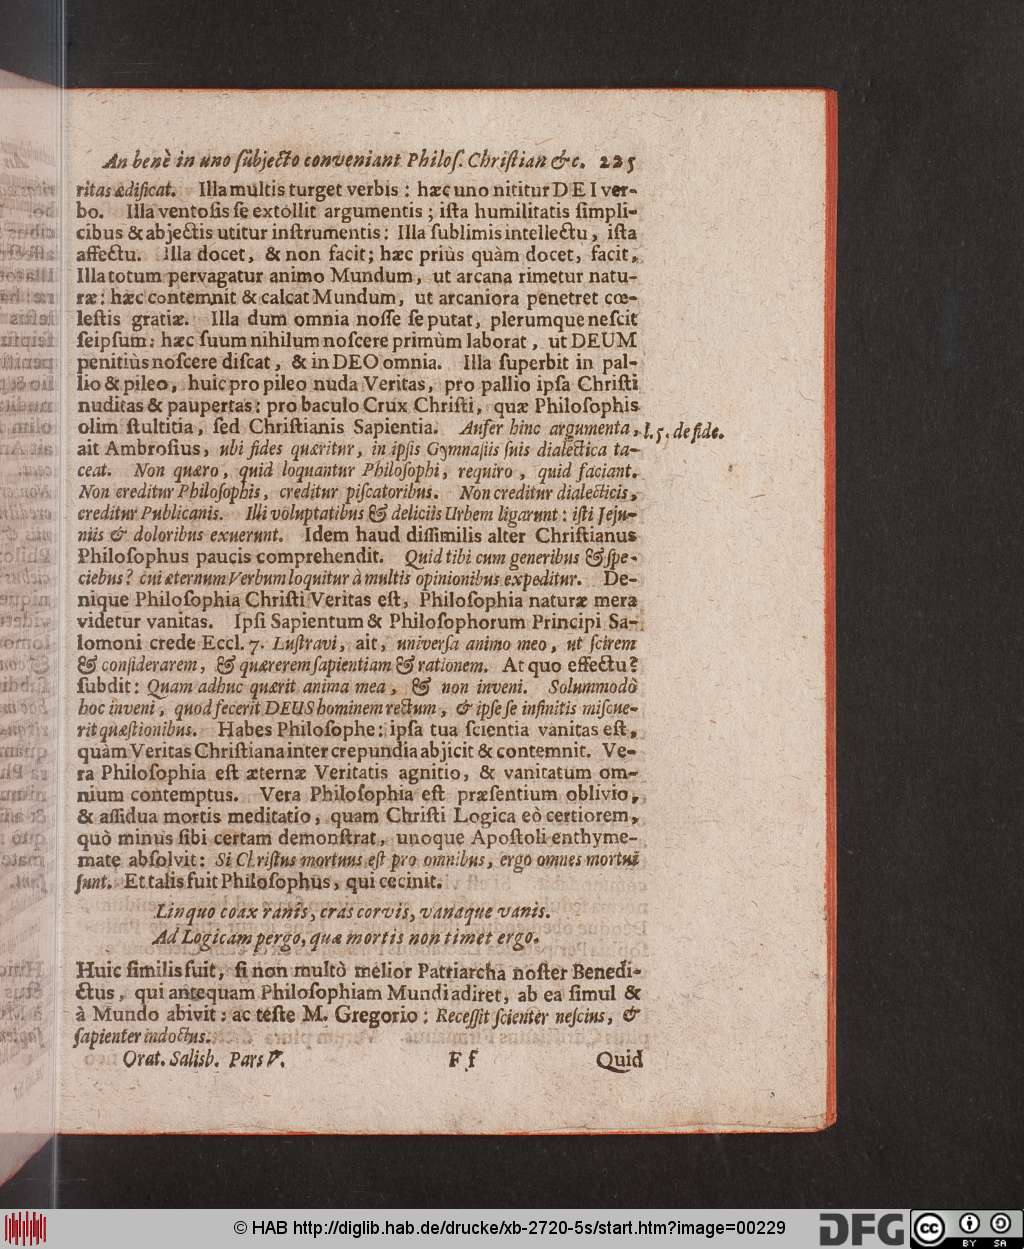 An benè in uno ſubjecto conveniant Philoſ. Chriſtian &c. 225
ritas ædificat. Illa multis turget verbis: hæc uno nititur DEI ver-
bo. Illa ventoſis ſe extollit argumentis; iſta humilitatis ſimpli-
cibus & abjectis utitur inſtrumentis: Illa ſublimis intellectu, iſta
affectu. Illa docet, & non facit; hæc priùs quàm docet, facit,
Illa totum pervagatur animo Mundum, ut arcana rimetur natu-
ræ: hæc contemnit & calcat Mundum, ut arcaniora penetret cœ-
leſtis gratiæ. Illa dum omnia noſſe ſe putat, plerumque neſcit
ſeipſum: hæc ſuum nihilum noſcere primùm laborat, ut DEUM
penitiùs noſcere diſcat, & in DEO omnia. Illa ſuperbit in pal-
lio & pileo, huic pro pileo nuda Veritas, pro pallio ipſa Chriſti
nuditas & paupertas: pro baculo Crux Chriſti, quæ Philoſophis
olim ſtultitia, ſed Chriſtianis Sapientia. Aufer hinc argumenta, l. 5. de fide.
ait Ambroſius, ubi fides quæritur, in ipſis Gymnaſiis ſuis dialectica ta-
ceat. Non quæro, quid loquantur Philoſophi, requiro, quid faciant.
Non creditur Philoſophis, creditur piſcatoribus. Non creditur dialecticis,
creditur Publicanis. Illi voluptatibus & deliciis Urbem ligarunt: iſti Jeju-
niis & doloribus exuerunt. Idem haud diſſimilis alter Chriſtianus
Philoſophus paucis comprehendit. Quid tibi cum generibus & ſpe-
ciebus? cui æternum Verbum loquitur à multis opinionibus expeditur. De-
nique Philoſophia Chriſti Veritas eſt, Philoſophia naturæ mera
videtur vanitas. Ipſi Sapientum & Philoſophorum Principi Sa-
lomoni crede Eccl. 7. Luſtravi, ait, univerſa animo meo, ut ſcirem
& conſiderarem, & quærerem ſapientiam & rationem. At quo effectu?
ſubdit: Quam adhuc quærit anima mea, & non inveni. Solummodò
hoc inveni, quod fecerit DEUS hominem rectum, & ipſe ſe infinitis miſcue-
rit quæſtionibus. Habes Philoſophe: ipſa tua ſcientia vanitas eſt,
quàm Veritas Chriſtiana inter crepundia abjicit & contemnit. Ve-
ra Philoſophia eſt æternæ Veritatis agnitio, & vanitatum om-
nium contemptus. Vera Philoſophia eſt præſentium oblivio,
& aſſidua mortis meditatio, quam Chriſti Logica eò certiorem,
quò minus ſibi certam demonſtrat, unoque Apoſtoli enthyme-
mate abſolvit: Si Chriſtus mortuus eſt pro omnibus, ergo omnes mortui
ſunt. Et talis fuit Philoſophus, qui cecinit.
Linquo coax ranis, cras corvis, vanaque vanis.
Ad Logicam pergo, quæ mortis non timet ergo.
Huic ſimilis fuit, ſi non multò melior Patriarcha noſter Benedi-
ctus, qui antequam Philoſophiam Mundi adiret, ab ea ſimul &
à Mundo abivit: ac teſte M. Gregorio: Receſſit ſcienter neſcius, &
ſapienter indoctus.
Orat. Salisb. Pars V. F f Quid
© HAB http://diglib.hab.de/drucke/xb-2720-5s/start.htm?image=00229
DFG cc BY SA